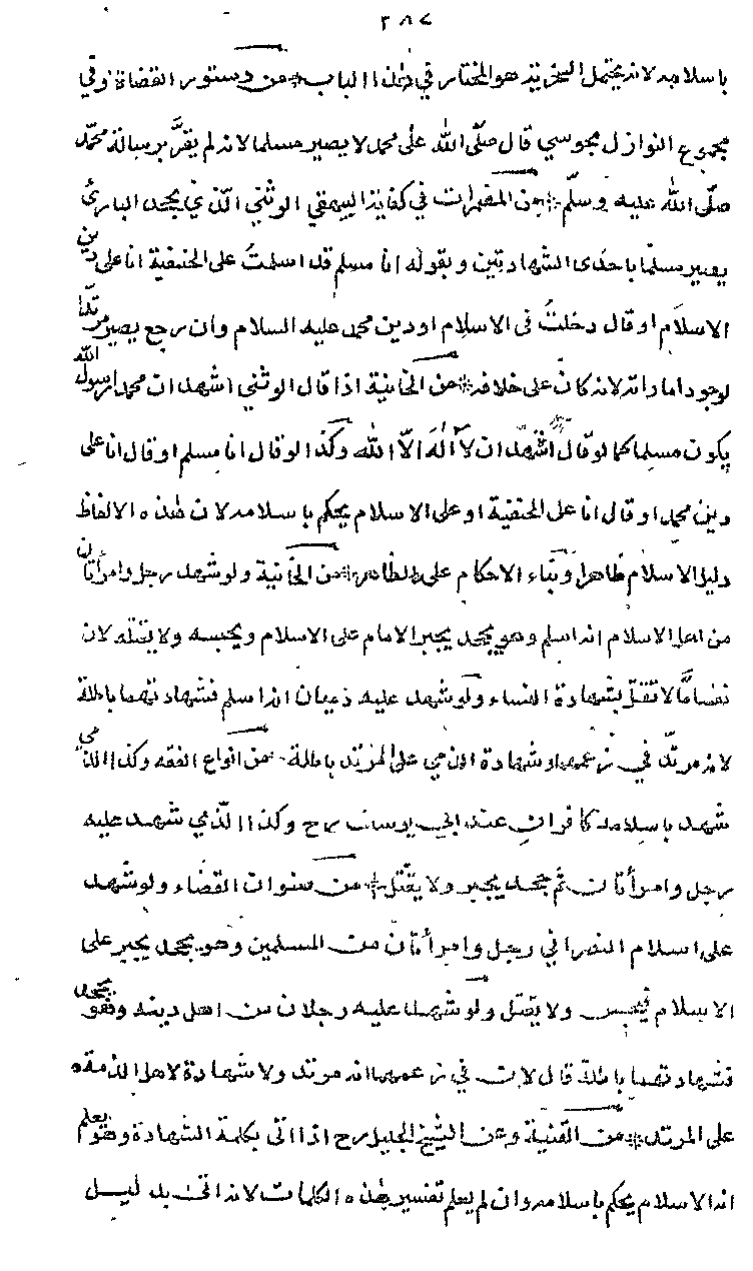 ٣٨٧
باسلامه لانه يحتمل السخرية هو المختار في هذا الباب * من دستور القضاة وفي
مجموع النوازل مجوسي قال صلّى الله على محمد لا يصير مسلما لانه لم يقرّ برسالة محمّد
صلّى الله عليه وسلّم * من المضمرات في كفاية البيهقي الوثني الّذي يجحد البارئ
يصير مسلّما باحدى الشهادتين وبقوله انا مسلم قد اسلمتُ على الحنيفية انا على دين
الاسلام او قال دخلتُ في الاسلام او دين محمد عليه السلام وان رجع يصير مرتدّا
لوجود اماراته لانه كان على خلافه * من الخانية اذا قال الوثني اشهد ان محمد ارسول الله
يكون مسلما كما لو قال اشهد ان لا اله الّا الله وكذا لو قال انا مسلم او قال انا على
دين محمد او قال انا على الحنفية او على الاسلام يحكم باسلامه لان هذه الالفاظ
دليل الاسلام ظاهرا وبناء الاحكام على الظاهر * من الخانية ولو شهد رجل وامرأتان
من اهل الاسلام انه اسلم وهو يجحد يجبر الامام على الاسلام ويحبسه ولا يقتله لان
نفسا مّا لا تقتل بشهادة النساء ولو شهد عليه ذميان انه اسلم فشهادتهما باطلة
لانه مرتدّ في زعمهما وشهادة الذمي على المرتد باطلة * من انواع الفقه وكذا الذمي
شهد باسلامه كافران عند ابي يوسف رح وكذا الذّمي شهد عليه
رجل وامرأتان ثم جحد يجبر ولا يقتل * من صنوان القضاء ولو شهد
على اسلام النصراني رجل وامرأتان من المسلمين وهو يجحد يجبر على
الاسلام فيحبس ولا يقتل ولو شهد عليه رجلان من اهل دينه وهو يجحد
فشهادتهما باطلة قال لان في زعمهما انه مرتد ولا شهادة لاهل الذمة
على المرتد * من القنية وعن الشيخ الجليل رح اذا اتى بكلمة الشهادة وهو يعلم
انه الاسلام يحكم باسلامه وان لم يعلم تفسير هذه الكلمات لانه اتى بدليل